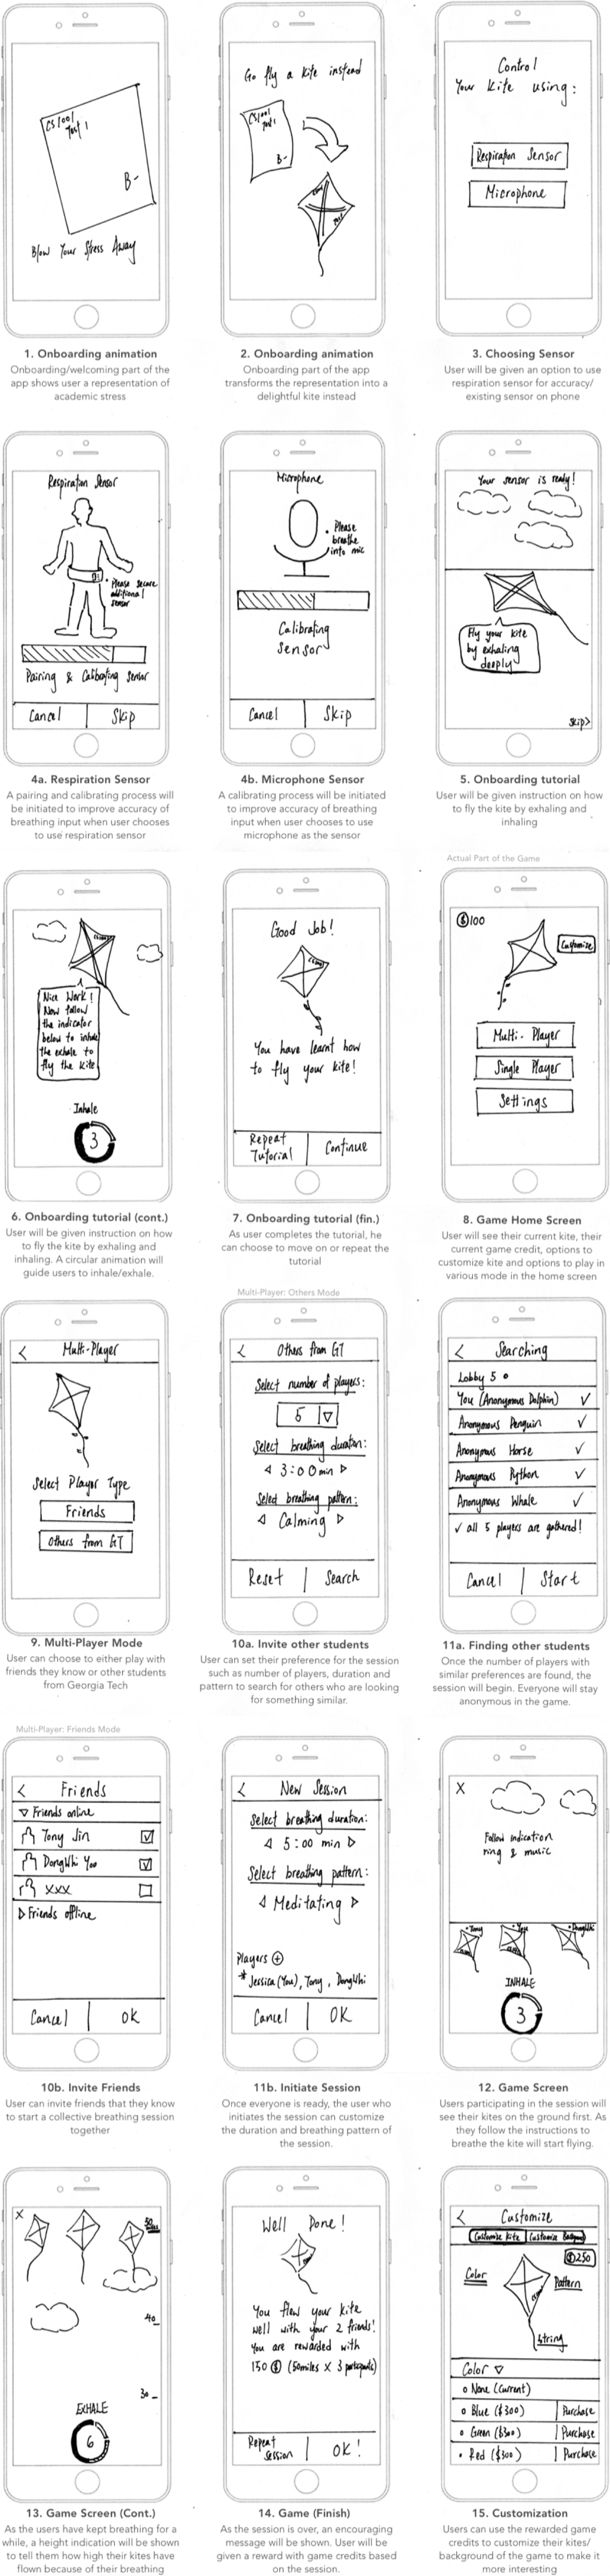 CS1001
Test 1
B-
Blow Your Stress Away
1. Onboarding animation
Onboarding/welcoming part of the
app shows user a representation of
academic stress
Go fly a kite instead
CS1001
Test 1
B-
2. Onboarding animation
Onboarding part of the app
transforms the representation into a
delightful kite instead
Control
Your kite using:
Respiration Sensor
Microphone
3. Choosing Sensor
User will be given an option to use
respiration sensor for accuracy/
existing sensor on phone
Respiration Sensor
Please secure
additional
sensor
Pairing & Calibrating Sensor
Cancel
Skip
4a. Respiration Sensor
A pairing and calibrating process will
be initiated to improve accuracy of
breathing input when user chooses
to use respiration sensor
Microphone
Please
breathe
into mic
Calibrating
Sensor
Cancel
Skip
4b. Microphone Sensor
A calibrating process will be initiated
to improve accuracy of breathing
input when user chooses to use
microphone as the sensor
Your sensor is ready!
Fly your kite
by exhaling
deeply
Skip>
5. Onboarding tutorial
User will be given instruction on how
to fly the kite by exhaling and
inhaling
Nice Work!
Now follow
the indicator
below to inhale
the exhale to
fly the kite
Inhale
3
6. Onboarding tutorial (cont.)
User will be given instruction on how
to fly the kite by exhaling and
inhaling. A circular animation will
guide users to inhale/exhale.
Good Job!
You have learnt how
to fly your kite!
Repeat
Tutorial
Continue
7. Onboarding tutorial (fin.)
As user completes the tutorial, he
can choose to move on or repeat the
tutorial
Actual Part of the Game
$100
Customize
Multi-Player
Single Player
Settings
8. Game Home Screen
User will see their current kite, their
current game credit, options to
customize kite and options to play in
various mode in the home screen
< Multi-Player
Select Player Type
Friends
Others from GT
9. Multi-Player Mode
User can choose to either play with
friends they know or other students
from Georgia Tech
Multi-Player: Others Mode
< Others from GT
Select number of players:
5
Select breathing duration:
3:00min
Select breathing pattern:
Calming
Reset
Search
10a. Invite other students
User can set their preference for the session
such as number of players, duration and
pattern to search for others who are looking
for something similar.
< Searching
Lobby 5
You (Anonymous Dolphin) ✓
Anonymous Penguin ✓
Anonymous Horse ✓
Anonymous Python ✓
Anonymous Whale ✓
✓ all 5 players are gathered!
Cancel
Start
11a. Finding other students
Once the number of players with
similar preferences are found, the
session will begin. Everyone will stay
anonymous in the game.
Multi-Player: Friends Mode
< Friends
Friends online
Tony Jin
DongWhi Yoo
xxx
Friends offline
Cancel
OK
10b. Invite Friends
User can invite friends that they know
to start a collective breathing session
together
< New Session
Select breathing duration:
5:00 min
Select breathing pattern:
Meditating
Players +
* Jessica (You), Tony, DongWhi
Cancel
OK
11b. Initiate Session
Once everyone is ready, the user who
initiates the session can customize
the duration and breathing pattern of
the session.
X
Follow indication
ring & music
Tony
You
DongWhi
INHALE
3
12. Game Screen
Users participating in the session will
see their kites on the ground first. As
they follow the instructions to
breathe the kite will start flying.
X
50
miles
40
30
EXHALE
6
13. Game Screen (Cont.)
As the users have kept breathing for a
while, a height indication will be shown
to tell them how high their kites have
flown because of their breathing
Well Done!
You flew your kite
well with your 2 friends!
You are rewarded with
150 $ (50miles X 3 participants)
Repeat
Session
OK!
14. Game (Finish)
As the session is over, an encouraging
message will be shown. User will be
given a reward with game credits based
on the session.
< Customize
Customize Kite
Customize Background
$250
Color
Pattern
String
Color
None (Current)
Blue ($300)
Purchase
Green ($300)
Purchase
Red ($300)
Purchase
15. Customization
Users can use the rewarded game
credits to customize their kites/
background of the game to make it
more interesting